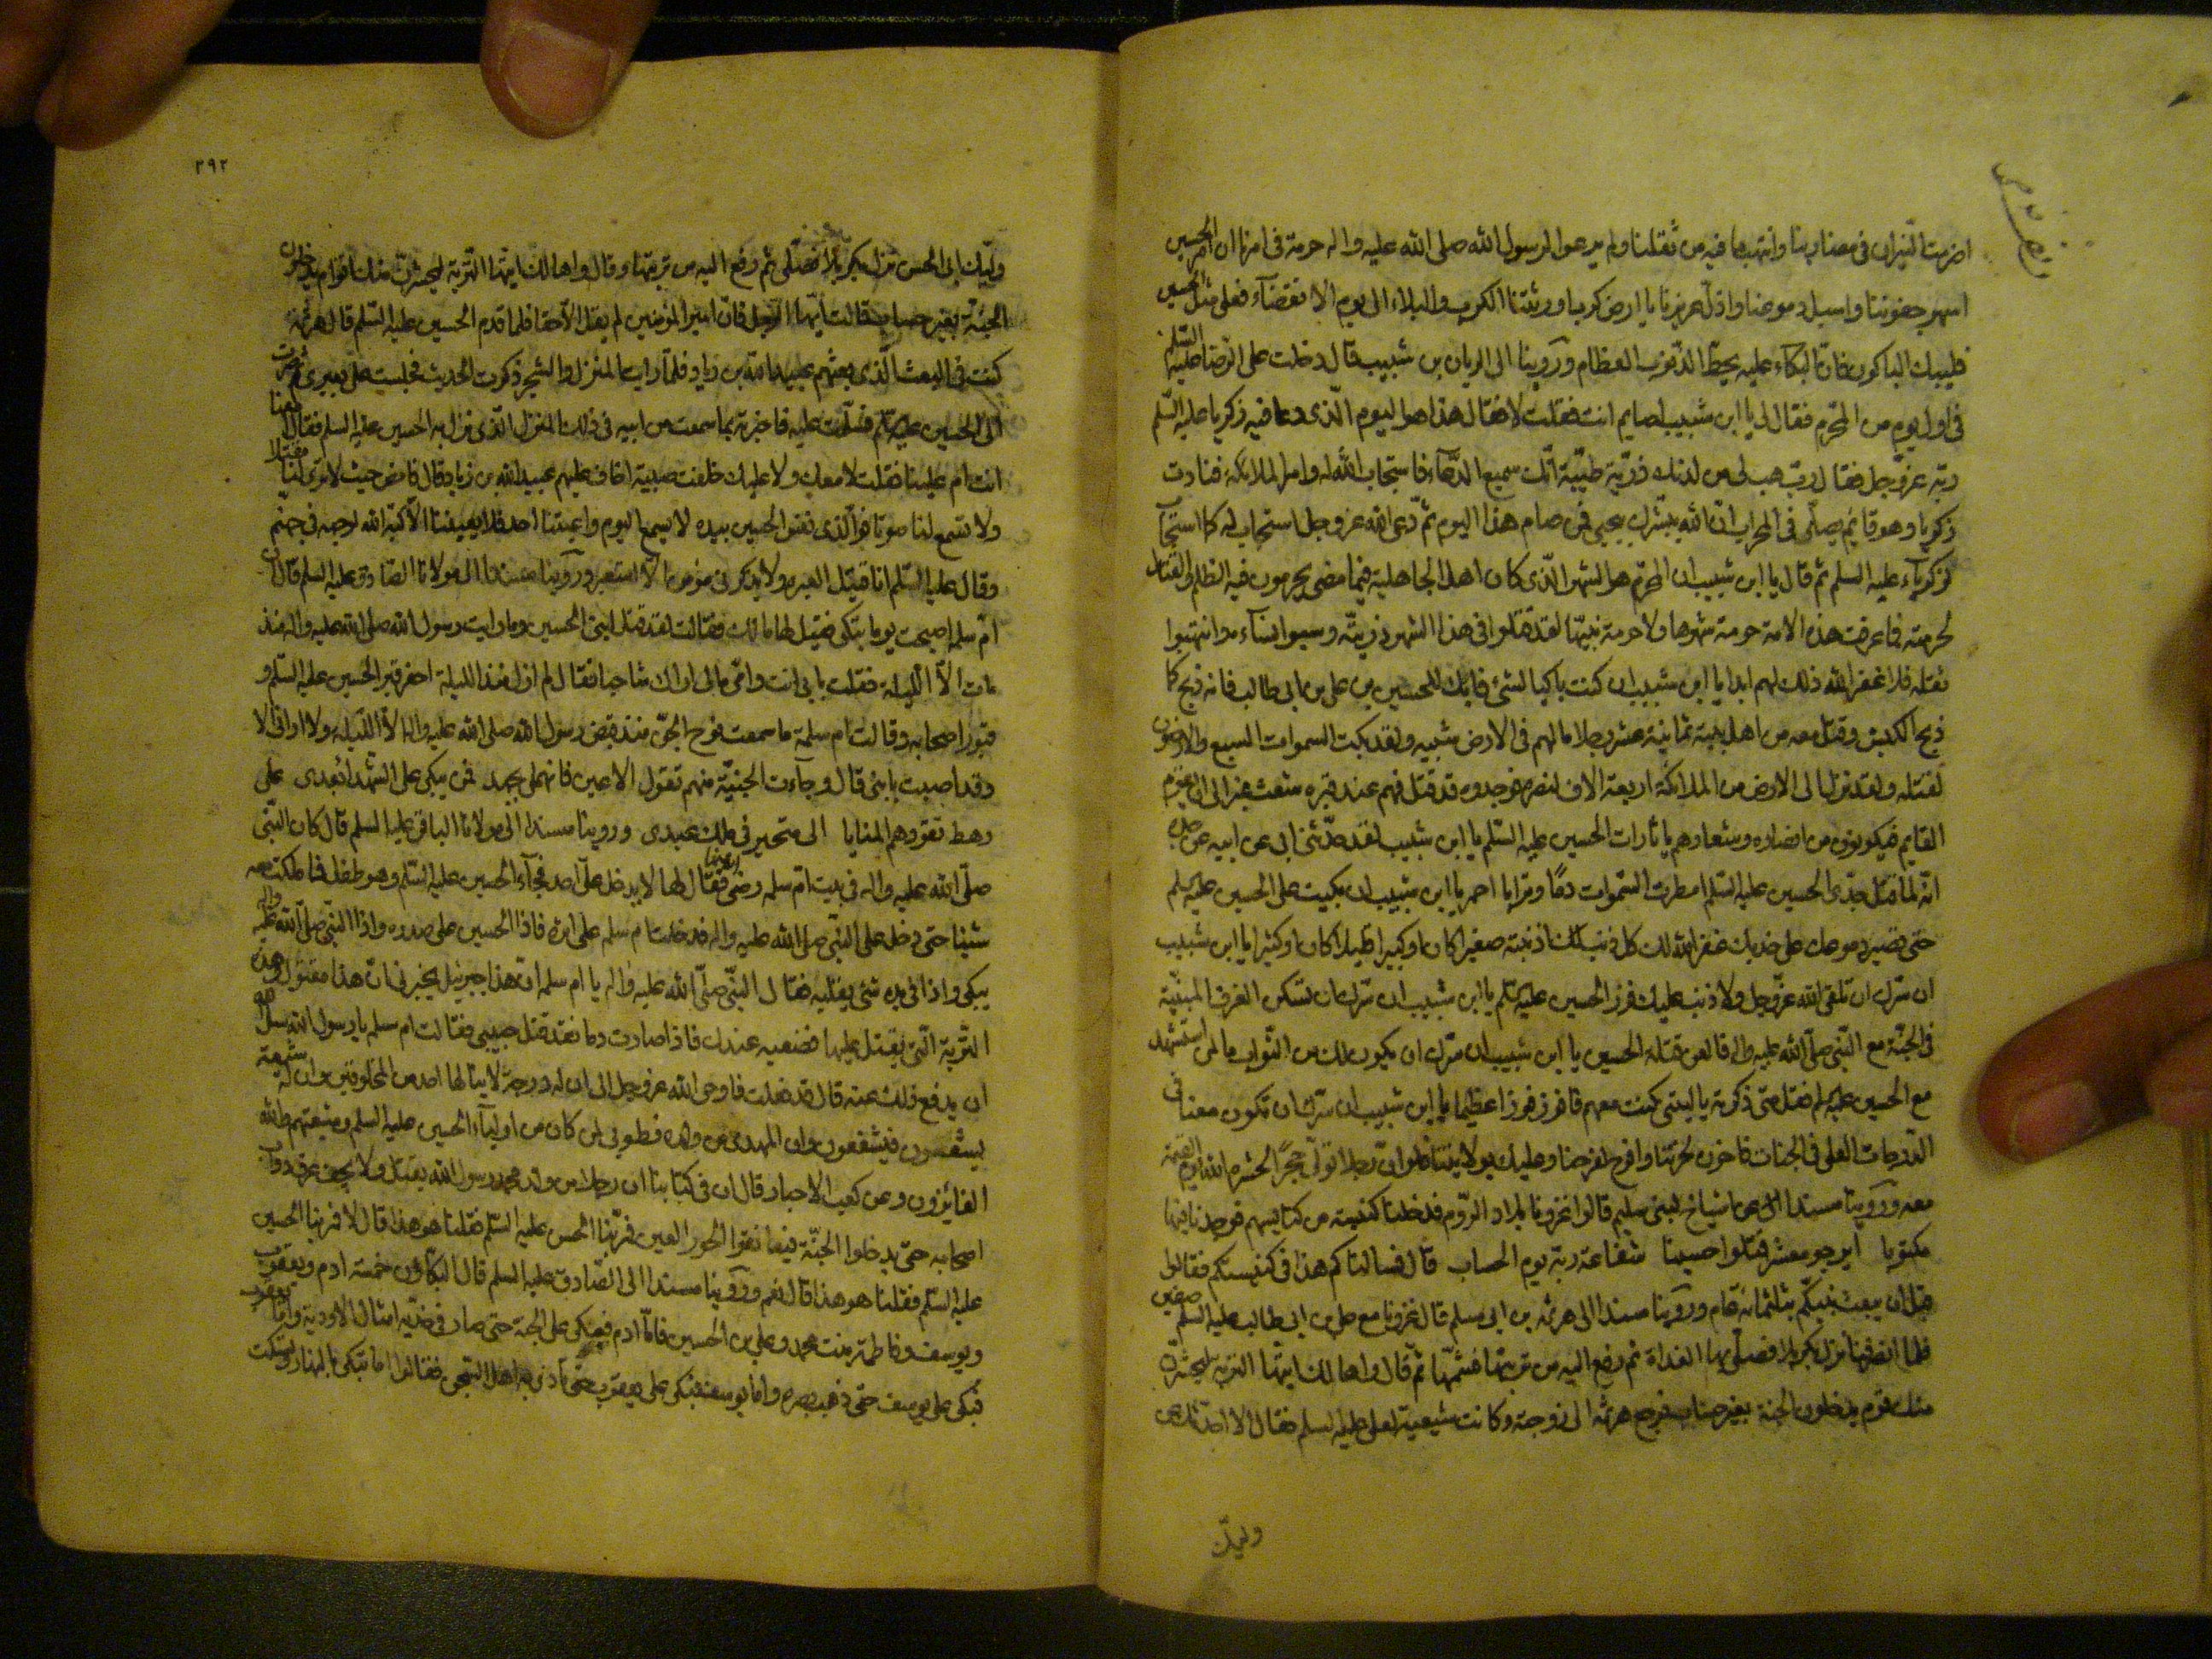 اضرمت النيران في مضاربنا وانتهب ما فيه من ثقلنا ولم يرعوا لرسول الله صلى الله عليه واله حرمة في امرنا ان امر الحسين
اسهر جفوننا واسبل دموعنا واذل عزيزنا يا ارض كربلا ورثتنا الكرب والبلاء الى يوم الانقضآء فعلى مثل الحسين
فليبك الباكون فان البكاء عليه يحط الذنوب العظام وروينا الى الريان بن شبيب قال دخلت على الرضا عليه السلم
في اول يوم من المحرم فقال لي يا ابن شبيب اصايم انت فقلت لا فقال هذا هو اليوم الذي دعا فيه زكريا عليه السلم
ربه عز وجل فقال رب هب لي من لدنك ذرية طيبة انك سميع الدعآء فاستجاب الله له وامر الملائكة فنادت
زكريا وهو قايم يصلي في المحراب ان الله يبشرك بيحيى فمن صام هذا اليوم ثم دعى الله عز وجل استجاب له كما استجاب
لزكرياء عليه السلم ثم قال يا ابن شبيب ان المحرم هو الشهر الذي كان اهل الجاهلية فيما مضى يحرمون فيه الظلم والقتال
لحرمته فما عرفت هذه الامة حرمة شهرها ولا حرمة نبيها لقد قتلوا في هذا الشهر ذريته وسبوا نساءه وانتهبوا
ثقله فلا غفر الله ذلك لهم ابدا يا ابن شبيب ان كنت باكيا لشئ فابك للحسين بن علي بن ابي طالب فانه ذبح كما
ذبح الكبش وقتل معه من اهل بيته ثمانية عشر رجلا ما لهم في الارض شبيه ولقد بكت السموات السبع والارضون
لقتله ولقد نزل الى الارض من الملائكة اربعة الاف لنصره فوجدوه قد قتل فهم عند قبره شعث غبر الى ان يقوم
القايم فيكونون من انصاره وشعارهم يا ثارات الحسين عليه السلم يا ابن شبيب لقد حدثني ابي عن ابيه عن جده
انه لما قتل جدي الحسين عليه السلم امطرت السموات دما وترابا احمر يا ابن شبيب ان بكيت على الحسين عليه السلم
حتى تصير دموعك على خديك غفر الله لك كل ذنب اذنبته صغيرا كان او كبيرا قليلا كان او كثيرا يا ابن شبيب
ان سرك ان تلقى الله عز وجل ولا ذنب عليك فزر الحسين عليه السلم يا ابن شبيب ان سرك ان تسكن الغرف المبنية
في الجنة مع النبي صلى الله عليه واله فالعن قتلة الحسين يا ابن شبيب ان سرك ان يكون لك من الثواب ما لمن استشهد
مع الحسين عليه السلم فقل متى ذكرته يا ليتني كنت معهم فافوز فوزا عظيما يا ابن شبيب ان سرك ان تكون معنا في
الدرجات العلى في الجنات فاحزن لحزننا وافرح لفرحنا وعليك بولايتنا فلو ان رجلا تولى حجرا لحشره الله يوم القيمة
معه وروينا مسندا الى عن اشياخ لبني سليم قالوا غزونا بلاد الروم فدخلنا كنيسة من كنايسهم فوجدنا فيها
مكتوبا ايرجو معشر قتلوا حسينا شفاعة ربه يوم الحساب قال فسالناكم هذا في كنيستكم فقالوا
قبل ان يبعث نبيكم بثلثمائة عام وروينا مسندا الى هرثمة بن ابي مسلم قال غزونا مع علي بن ابي طالب عليه السلم صفين
فلما انصرفنا نزل بكربلا فصلى بها الغداة ثم رفع اليه من تربتها فشمها ثم قال واها لك ايتها التربة ليحشرن
منك قوم يدخلون الجنة بغير حساب فرجع هرثمة الى زوجته وكانت شيعية لعلي عليه السلم فقال الا احدثك عن
وليك
٢٩٢
وليك ابي الحسن نزل بكربلا فصلى ثم رفع اليه من تربتها وقال واها لك ايتها التربة ليحشرن منك اقوام يدخلون
الجنة بغير حساب قالت ايها الرجل فان امير المؤمنين لم يقل الا حقا فلما قدم الحسين عليه السلم قال هرثمة
كنت في البعث الذي بعثهم عبيد الله بن زياد فلما رايت المنزل والشجر ذكرت الحديث فجلست على بعيري ثم صرت
الى الحسين عليه السلم فسلمت عليه فاخبرته بما سمعت من ابيه في ذلك المنزل الذي نزل به الحسين عليه السلم فقال معنا
انت ام علينا فقلت لا معك ولا عليك خلفت صبية اخاف عليهم عبيد الله بن زياد قال فامض حيث لا ترى لنا مقتلا
ولا تسمع لنا صوتا فوالذي نفس الحسين بيده لا يسمع اليوم واعيتنا احد فلا يعيننا الا كبه الله لوجهه في جهنم
وقال عليه السلم انا قتيل العبرة ولا يذكرني مؤمن الا استعبر وروينا مسندا الى مولانا الصادق عليه السلم قال ان
ام سلمة اصبحت يوما تبكي فقيل لها ما لك فقالت لقد قتل ابني الحسين وما رايت رسول الله صلى الله عليه واله منذ
مات الا الليلة فقلت بابي انت وامي مالي اراك شاحبا فقال لم ازل منذ الليلة احفر قبر الحسين عليه السلم و
قبور اصحابه وقالت ام سلمة ما سمعت نوح الجن منذ قبض رسول الله صلى الله عليه واله الا الليلة ولا اراني الا
وقد اصبت بابني قال وجاءت الجنية منهم تقول الا عين فانهملي بجهد فمن يبكي على الشهدا بعدي على
رهط تقودهم المنايا الى متحير في ملك عبدي وروينا مسندا الى مولانا الباقر عليه السلم قال كان النبي
صلى الله عليه واله في بيت ام سلمه رضي الله عنها فقال لها لا يدخل على احد فجآء الحسين عليه السلم وهو طفل فما ملكت معه
شيئا حتى دخل على النبي صلى الله عليه واله فدخلت ام سلمه على اثره فاذا الحسين على صدره واذا النبي صلى الله عليه واله
يبكي واذا في يده شئ يقلبه فقال النبي صلى الله عليه واله يا ام سلمه ان هذا جبرئيل يخبرني ان هذا مقتول وهذه
التربة التي يقتل عليها فضعيه عندك فاذا صارت دما فقد قتل حبيبي فقالت ام سلمه يا رسول الله سل الله
ان يدفع ذلك عنه قال قد فعلت فاوحى الله عز وجل الى ان له درجة لا ينالها احد من المخلوقين وان له شيعة
يشفعون فيشفعون وان المهدي من ولده فطوبى لمن كان من اوليآء الحسين عليه السلم وشيعته هم والله
الفايزون وعن كعب الاحبار قال ان في كتابنا ان رجلا من ولد محمد رسول الله يقتل ولا يجف عرق دواب
اصحابه حتى يدخلوا الجنة فيعانقوا الحور العين فمر بنا الحسن عليه السلم فقلنا هو هذا قال لا فمر بنا الحسين
عليه السلم فقلنا هو هذا قال نعم وروينا مسندا الى الصادق عليه السلم قال البكاؤن خمسة ادم ويعقوب
ويوسف وفاطمة بنت محمد وعلي بن الحسين فاما ادم فبكى على الجنة حتى صار في خديه امثال الاودية واما يعقوب
فبكى على يوسف حتى ذهب بصره واما يوسف فبكى على يعقوب حتى تاذى به اهل السجن فقالوا اما تبكي بالنهار وتسكت